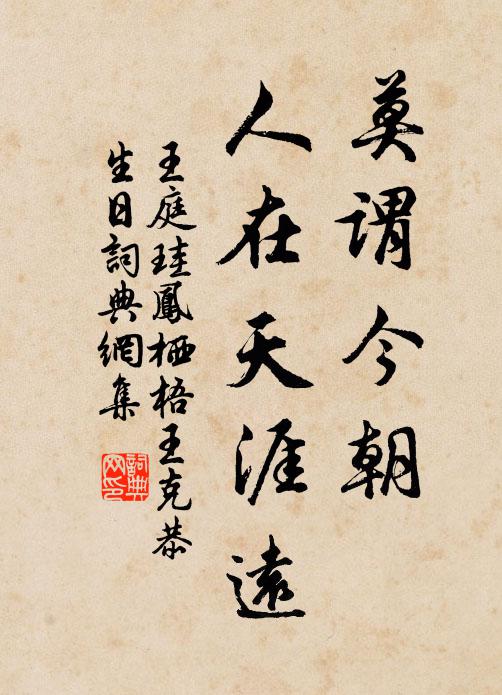 莫謂今朝
人在天涯遠
王庭珪鳳栖梧王克恭
生日詞典網集
詞典
網印